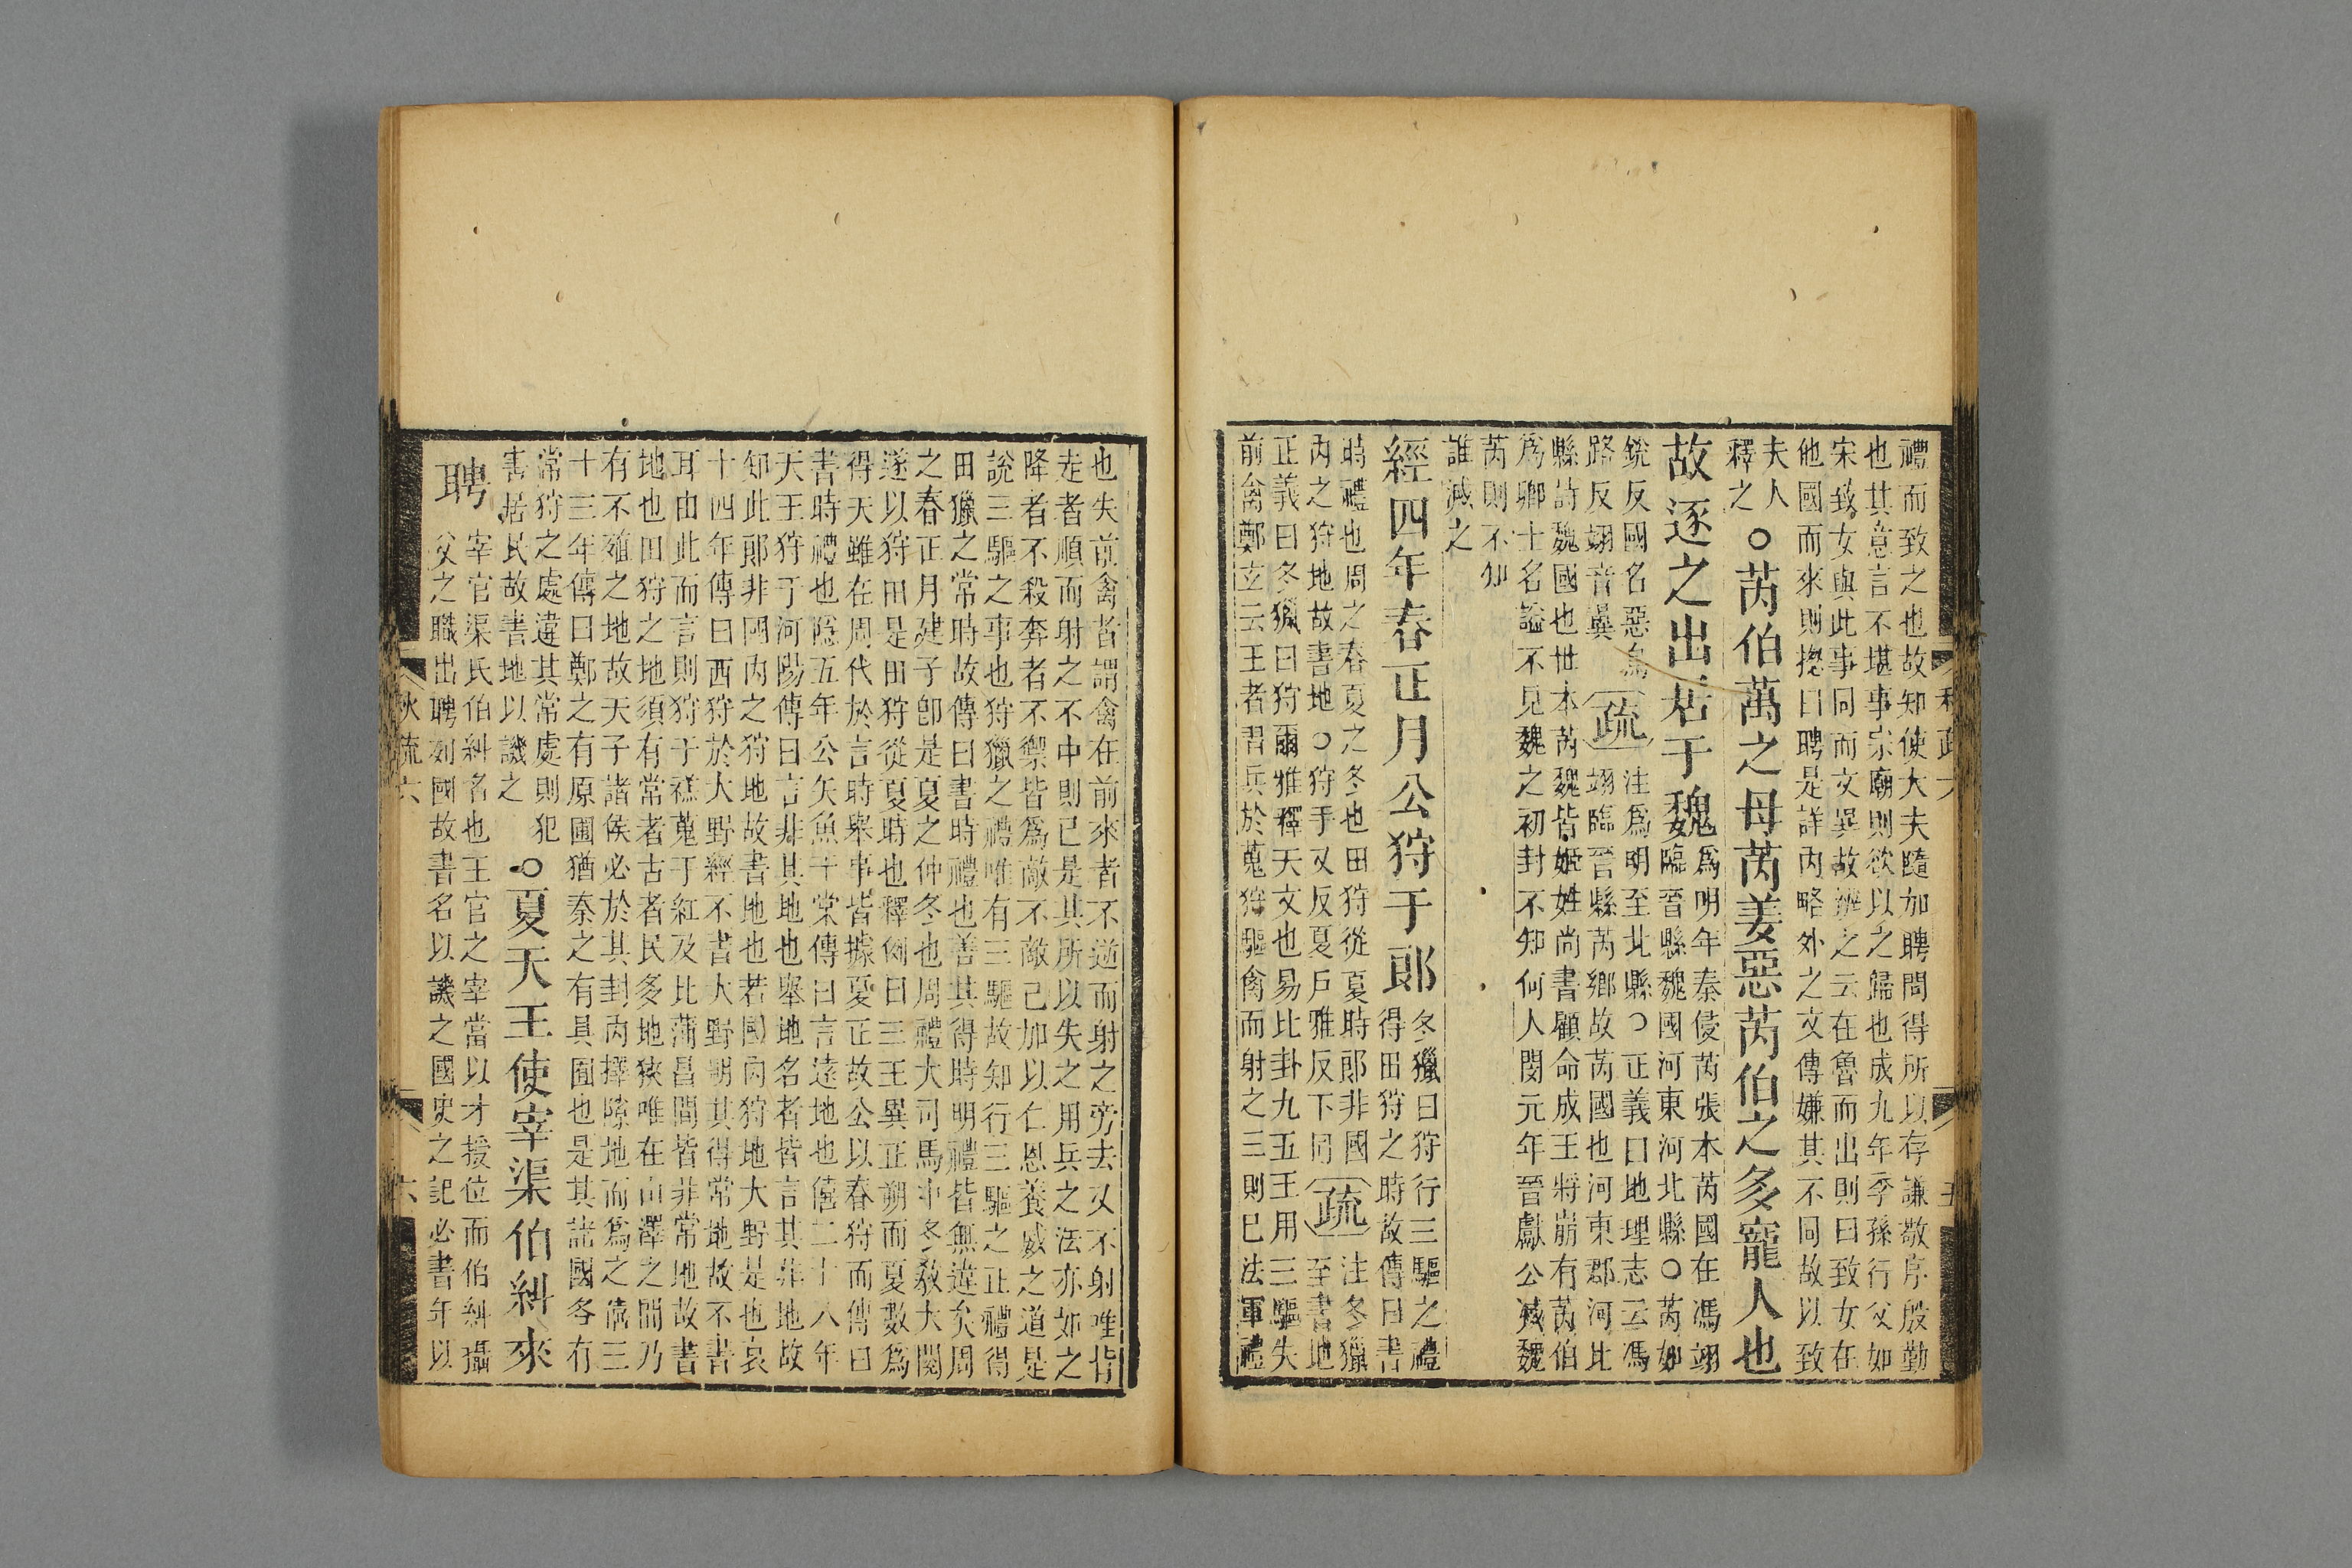 禮而致之也故知使大夫隨加聘問得所以存謙敬序殷勤
也其意言不堪事宗廟則欲以之歸也成九年季孫行父如
宋致女與此事同而文異故辨之云在魯而出則曰致女在
他國而來則揔曰聘是詳內略外之文傳嫌其不同故以致
夫人
釋之
○芮伯萬之母芮姜惡芮伯之多寵人也
故逐之出居于魏
爲明年秦侵芮張本芮國在馮翊
臨晉縣魏國河東河北縣○芮如
銳反國名惡烏
路反翊音異
疏
注爲明至北縣○正義曰地理志云馮
翊臨晉縣芮鄉故芮國也河東郡河北
縣詩魏國也世本芮魏皆姬姓尚書顧命成王將崩有芮伯
爲卿士名謚不見魏之初封不知何人閔元年晉獻公滅魏
芮則不知
誰滅之
經四年春正月公狩于郎
冬獵曰狩行三驅之禮
得田狩之時故傳曰書
時禮也周之春夏之冬也田狩從夏時郎非國
內之狩地故書地○狩手又反夏戶雅反下同
疏
注冬獵
至書地
正義曰冬獵曰狩爾雅釋天文也易比卦九五王用三驅失
前禽鄭玄云王者習兵於蒐狩驅禽而射之三則已法軍禮
也失前禽者謂禽在前來者不逆而射之旁去又不射唯背
走者順而射之不中則已是其所以失之用兵之法亦如之
降者不殺奔者不禦皆爲敵不敵己加以仁恩養威之道是
說三驅之事也狩獵之禮唯有三驅故知行三驅之正禮得
田獵之常時故傳曰書時禮也善其得時明禮皆無違矣周
之春正月建子卽是夏之仲冬也周禮大司馬中冬敎大閱
遂以狩田是田狩從夏時也釋例曰三王異正朔而夏數爲
得天雖在周代於言時舉事皆據夏正故公以春狩而傳曰
書時禮也隱五年公矢魚于棠傳曰言遠地也僖二十八年
天王狩于河陽傳曰言非其地也舉地名者皆言其非地故
知此郎非國內之狩地故書地也若國內狩地大野是也哀
十四年傳曰西狩於大野經不書大野明其得常地故不書
耳由此而言則狩于禚蒐于紅及比蒲昌間皆非常地故書
地也田狩之地須有常者古者民多地狹唯在山澤之間乃
有不殖之地故天子諸侯必於其封內擇隙地而爲之僖三
十三年傳曰鄭之有原圃猶秦之有具囿也是其諸國各有
常狩之處違其常處則犯
害居民故書地以譏之
○夏天王使宰渠伯糾來
聘
宰官渠氏伯糾名也王官之宰當以才授位而伯糾攝
父之職出聘列國故書名以譏之國史之記必書年以